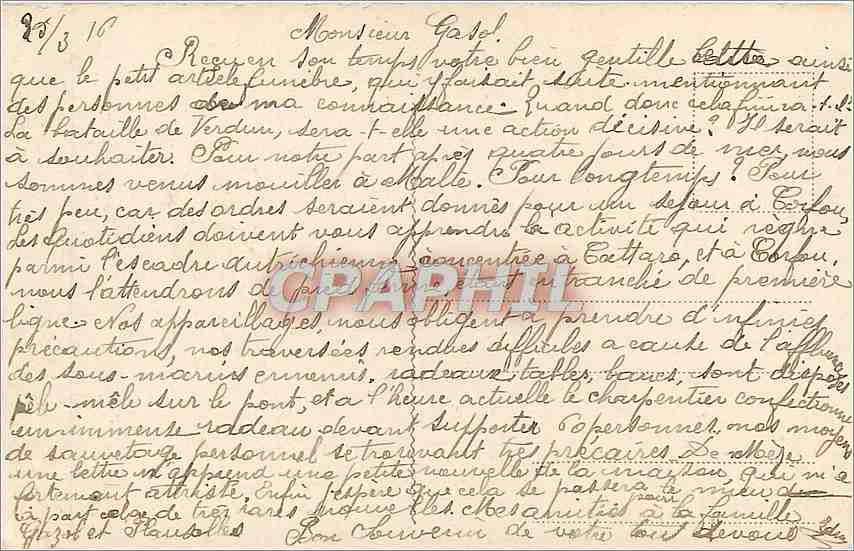 25/3 16 Monsieur Gasol.
Reçu en son temps votre bien gentille lettre ainsi
que le petit article funèbre, qui y faisait suite mentionnant
des personnes de ma connaissance. Quand donc cela finira-t-il
La bataille de Verdun, sera-t-elle une action décisive? Il serait
à souhaiter. Pour notre part après quatre jours de mer, nous
sommes venus mouiller à Malte. Pour longtemps? Pour
très peu, car des ordres seraient donnés pour un séjour à Corfou,
Les quotidiens doivent vous apprendre la activité qui règne
parmi l'escadre autrichienne, concentrée à Cattaro, et à Corfou.
nous l'attendrons de pied ferme, étant tranché de première
ligne. Nos appareillages, nous obligent à prendre d'infinies
précautions, nos traversées rendues difficiles a cause de l'affluence
des sous-marins ennemis. radeaux, tables, bancs, sont disposés
pêle-mêle sur le pont, et a l'heure actuelle le charpentier confectionne
un immense radeau devant supporter 60 personnes, nos moyens
de sauvetage personnel se trouvant très précaires. De Mèze
une lettre m'apprend une petite nouvelle de la maison, qui m'a
fortement attristé. Enfin j'espère que cela se passera pour le mieux
à part cela de très rares nouvelles. Mes amitiés à la famille
Gazol et
Bon Souvenir de votre tout dévoué
CPAPHIL